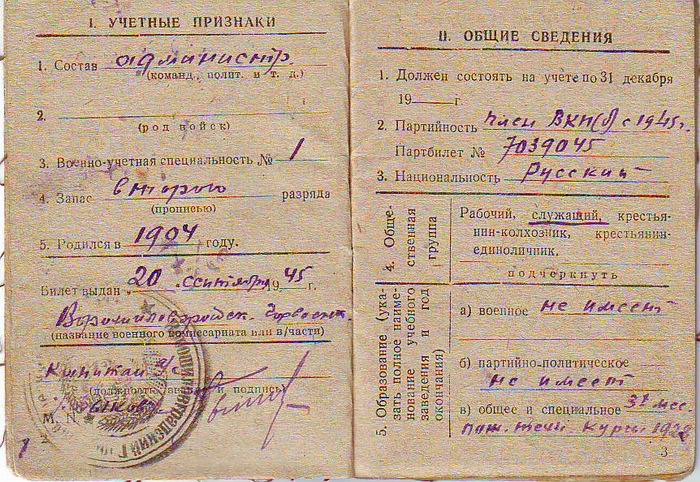 I. УЧЕТНЫЕ ПРИЗНАКИ
1. Состав администр
(команд., полит. и т. д.)
2.
(род войск)
3. Военно-учетная специальность № 1
4. Запас второго разряда
(прописью)
5. Родился в 1904 году.
Билет выдан 20 сентября 1945 г.
(название военного комиссариата или в/части)
Капитан а/с
(должность, и подпись)
М.
II. ОБЩИЕ СВЕДЕНИЯ
1. Должен состоять на учете по 31 декабря
19 г.
2. Партийность член ВКП(б) с 1945 г.
Партбилет № 7039045
3. Национальность Русский
4. Обще-
ственная
группа
Рабочий, служащий, крестья-
нин-колхозник, крестьянин-
единоличник.
подчеркнуть
5. Образование (ука-
зать полное наиме-
нование учебного
заведения и год
окончания)
а) военное не имеет
б) партийно-политическое
не имеет
в) общее и специальное
курсы 1922
3